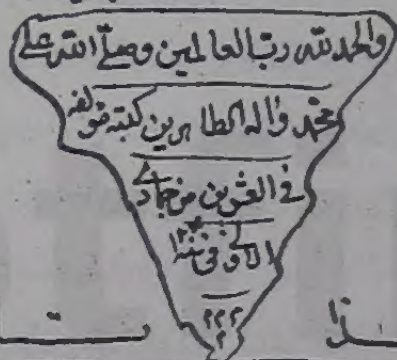 والحمد لله رب العالمين وصلى الله على
محمد واله الطاهرين كتبه مؤلفه
في العشرين من جمادى
الاولى سنة